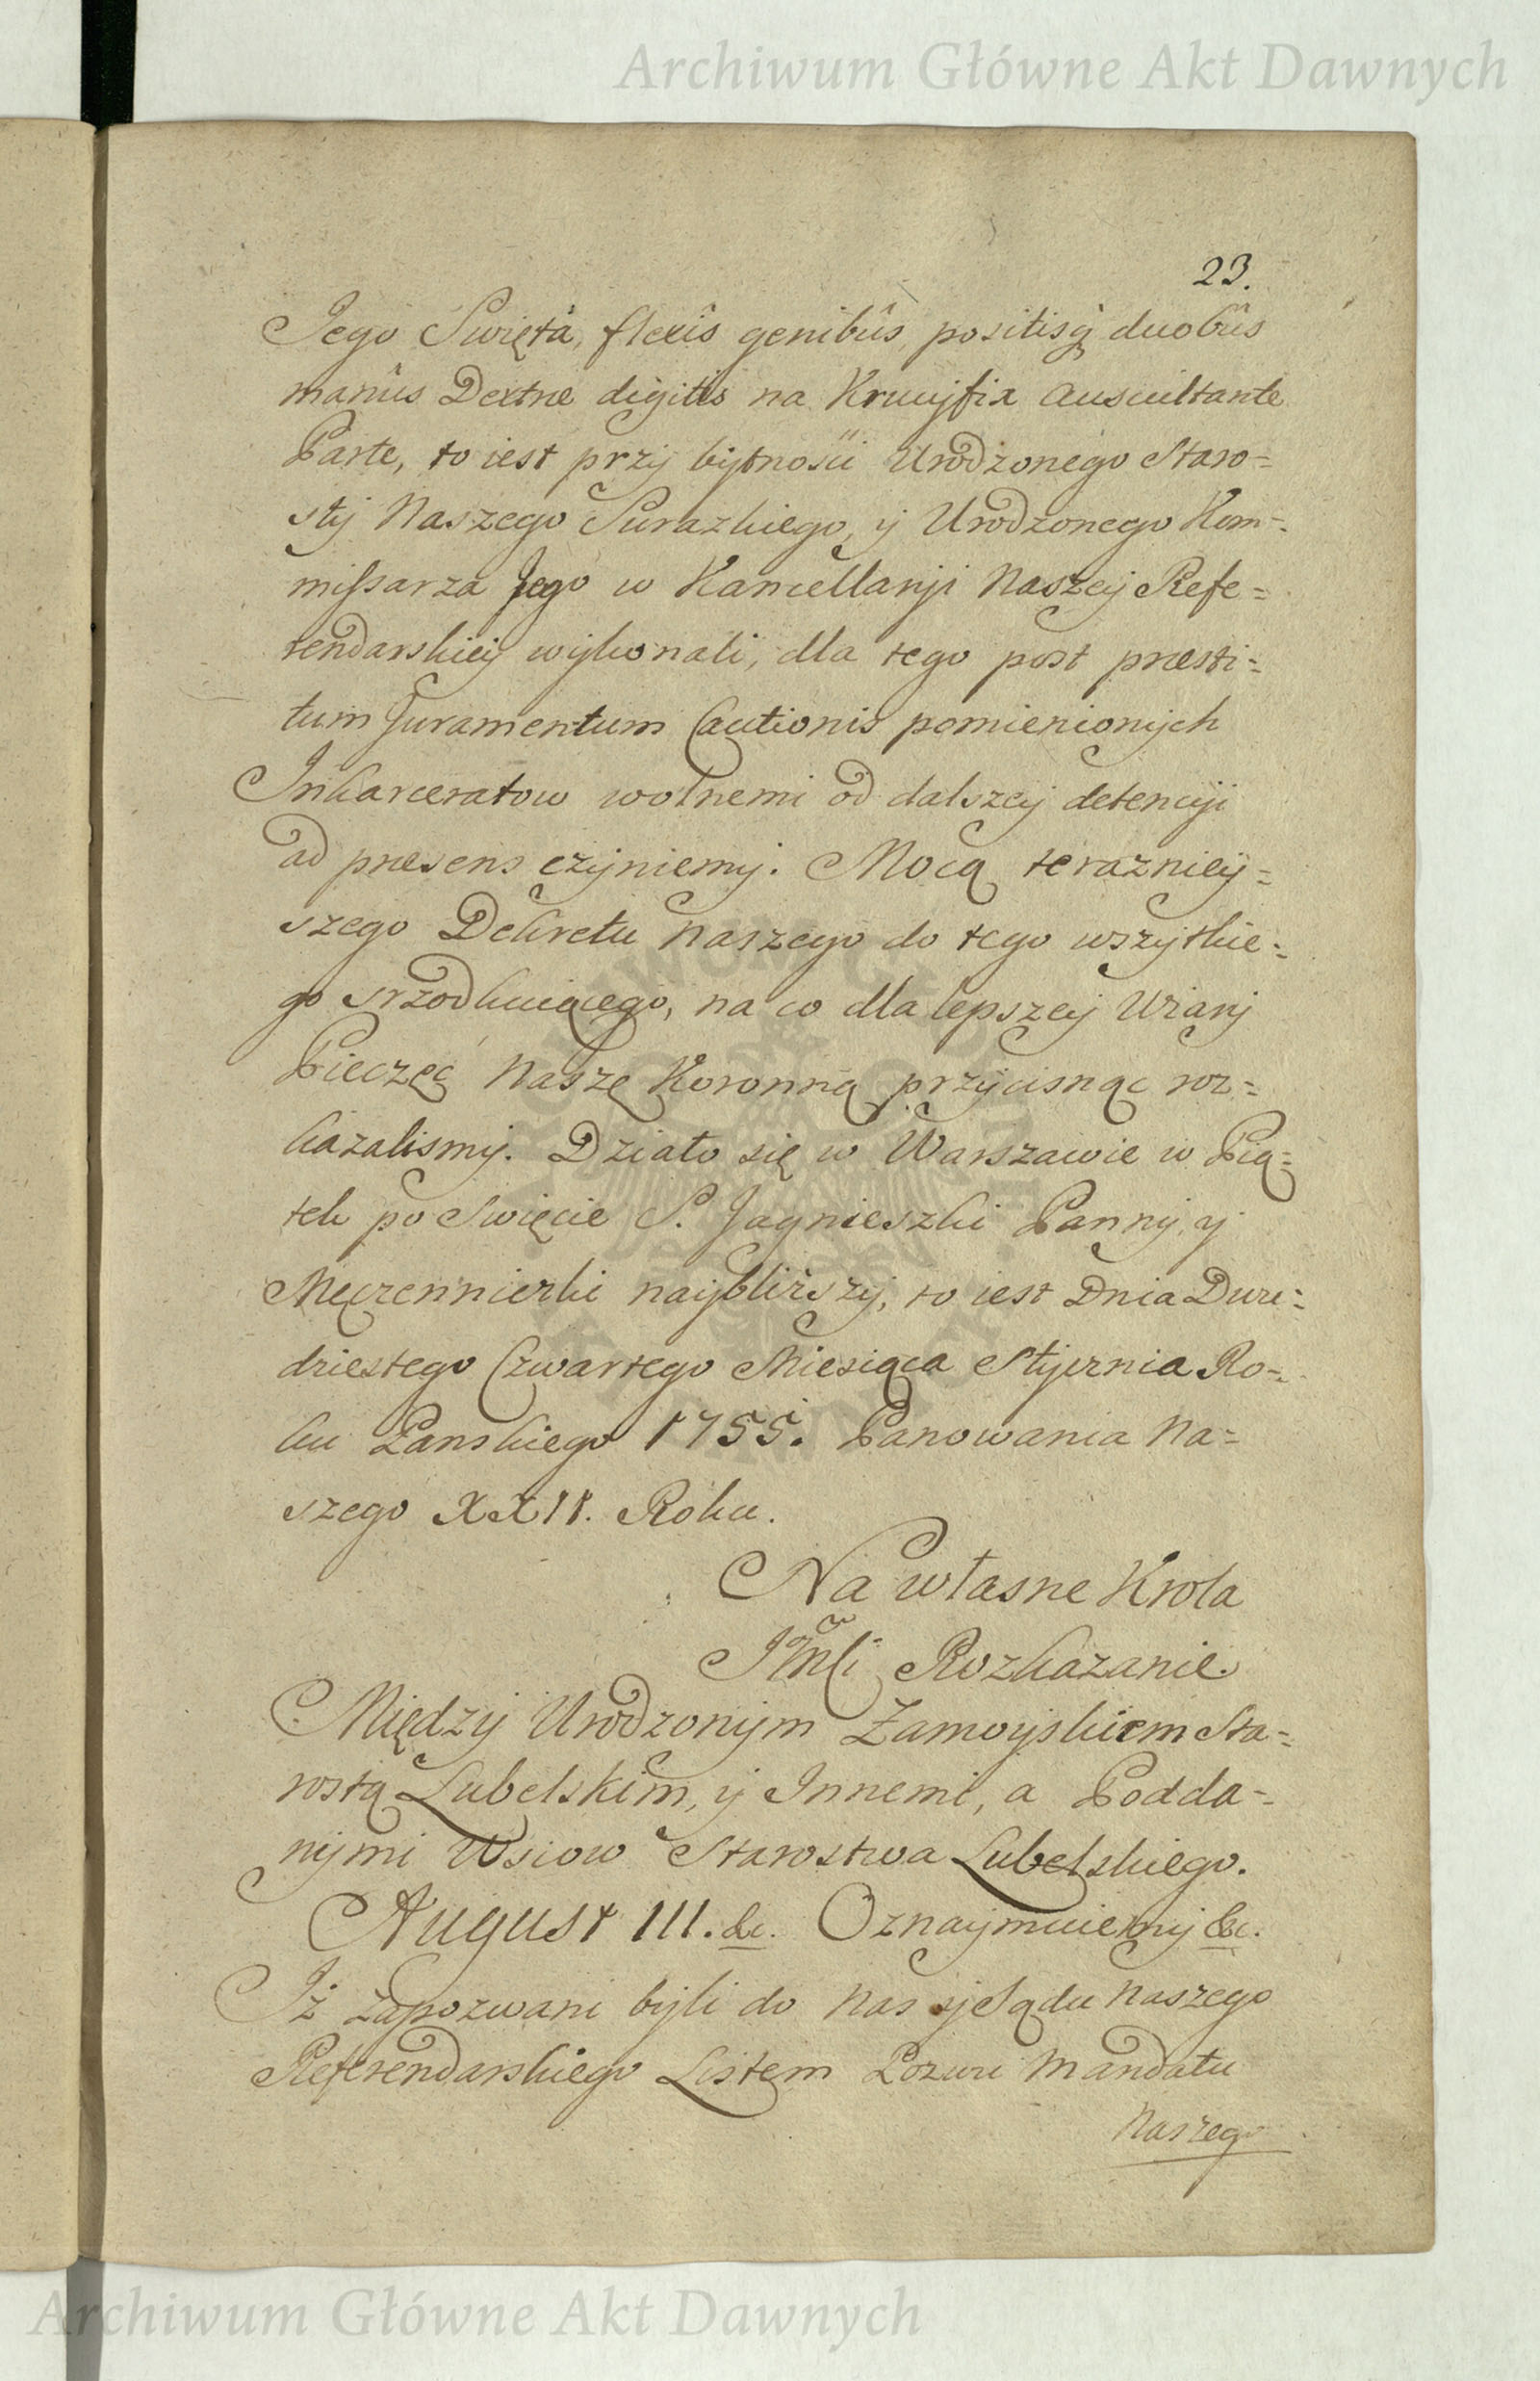 Archiwum Główne Akt Dawnych
23.
Jego Swięta, flexîs genibûs, positisq́ duobûs
manûs Dextræ digitis na Krucyfix auscultante
Parte, to iest przy bytnosci Urodzonego Staro=
sty Naszego Surazkiego, y Urodzonego Kom=
missarza Jego w Kancellaryi Naszey Refe=
rendarskiey wykonali, dla tego post præsti=
tum Juramentum Cautionis pomienionych
Inkarceratow wolnemi od dalszey detencyi
ad præsens czyniemy. Mocą terazniey=
szego Dekretu Naszego do tego wszytkie=
go srzodkuiącego, na co dla lepszey Wiary
Pieczęć Naszę Koronną przycisnąc roz=
kazalismy. Działo się w Warszawie w Pią=
tek po Swięcie S. Jagnieszki Panny, y
Męczennierki nayblizszy, to iest Dnia Dwu=
dziestego Czwartego Miesiąca Stycznia Ro=
ku Panskiego 1755. Panowania Na=
szego XXII. Roku.
Na własne Krola
JMći Rozkazanie.
Między Urodzonym Zamoyskiem Sta=
rostą Lubelskim, y Innemi, a Podda=
nymi Wsiow Starostwa Lubelskiego.
August III. &c. Oznaymuiemy &c.
Iż zapozwani byli do Nas y Sądu Naszego
Referendarskiego Listem Pozwu Mandatu
Naszego
Archiwum Główne Akt Dawnych